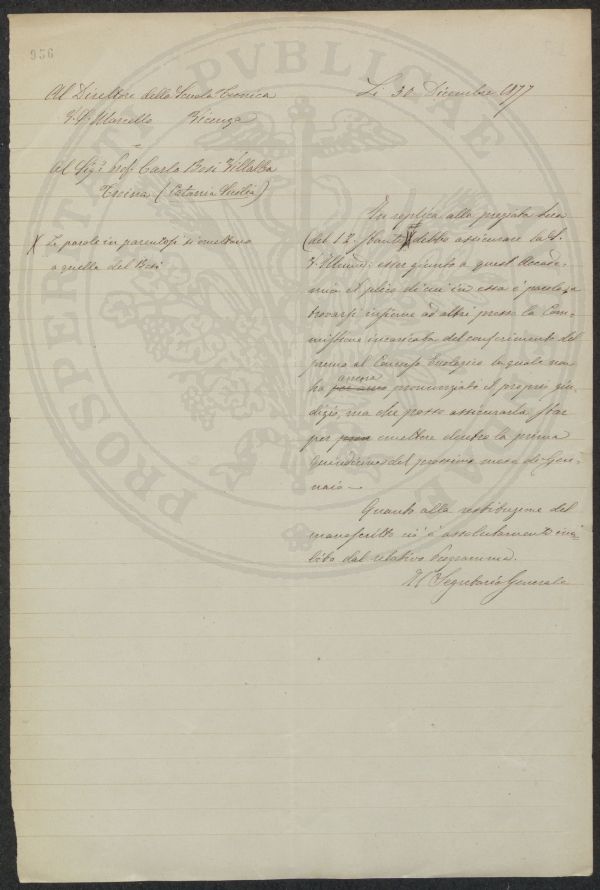 956
Al Direttore della Scuola Tecnica
Li 30 Dicembre 1877
Marcello Vicenza
Al Sig.r Prof. Carlo Bosi Villalba
Troina (Catania Sicilia)
X Le parole in parentesi si omettano
a quella del Bosi
In replica alla pregiata Sua
(del 12. stante) X debbo assicurare la S.
V. Illma: esser giunto a quest'Accade-
mia il plico di cui in essa è parola, e
trovarsi insieme ad altri presso la Com-
missione incaricata del conferimento del
premio al Concorso Enologico la quale non
ha per anco ancora pronunziato il proprio giu-
dizio, ma che posso assicurarla star
per emettere dentro la prima
quindicina del prossimo mese di Gen-
naio.—
Quanto alla restituzione del
manoscritto ciò è assolutamente ini-
bito dal relativo Programma.
Il Segretario Generale
PROSPERITATI PUBLICAE